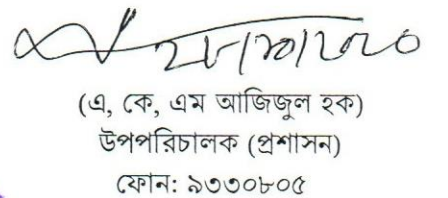 (এ, কে, এম আজিজুল হক)
উপপরিচালক (প্রশাসন)
ফোন: ৯৩৩০৮০৫